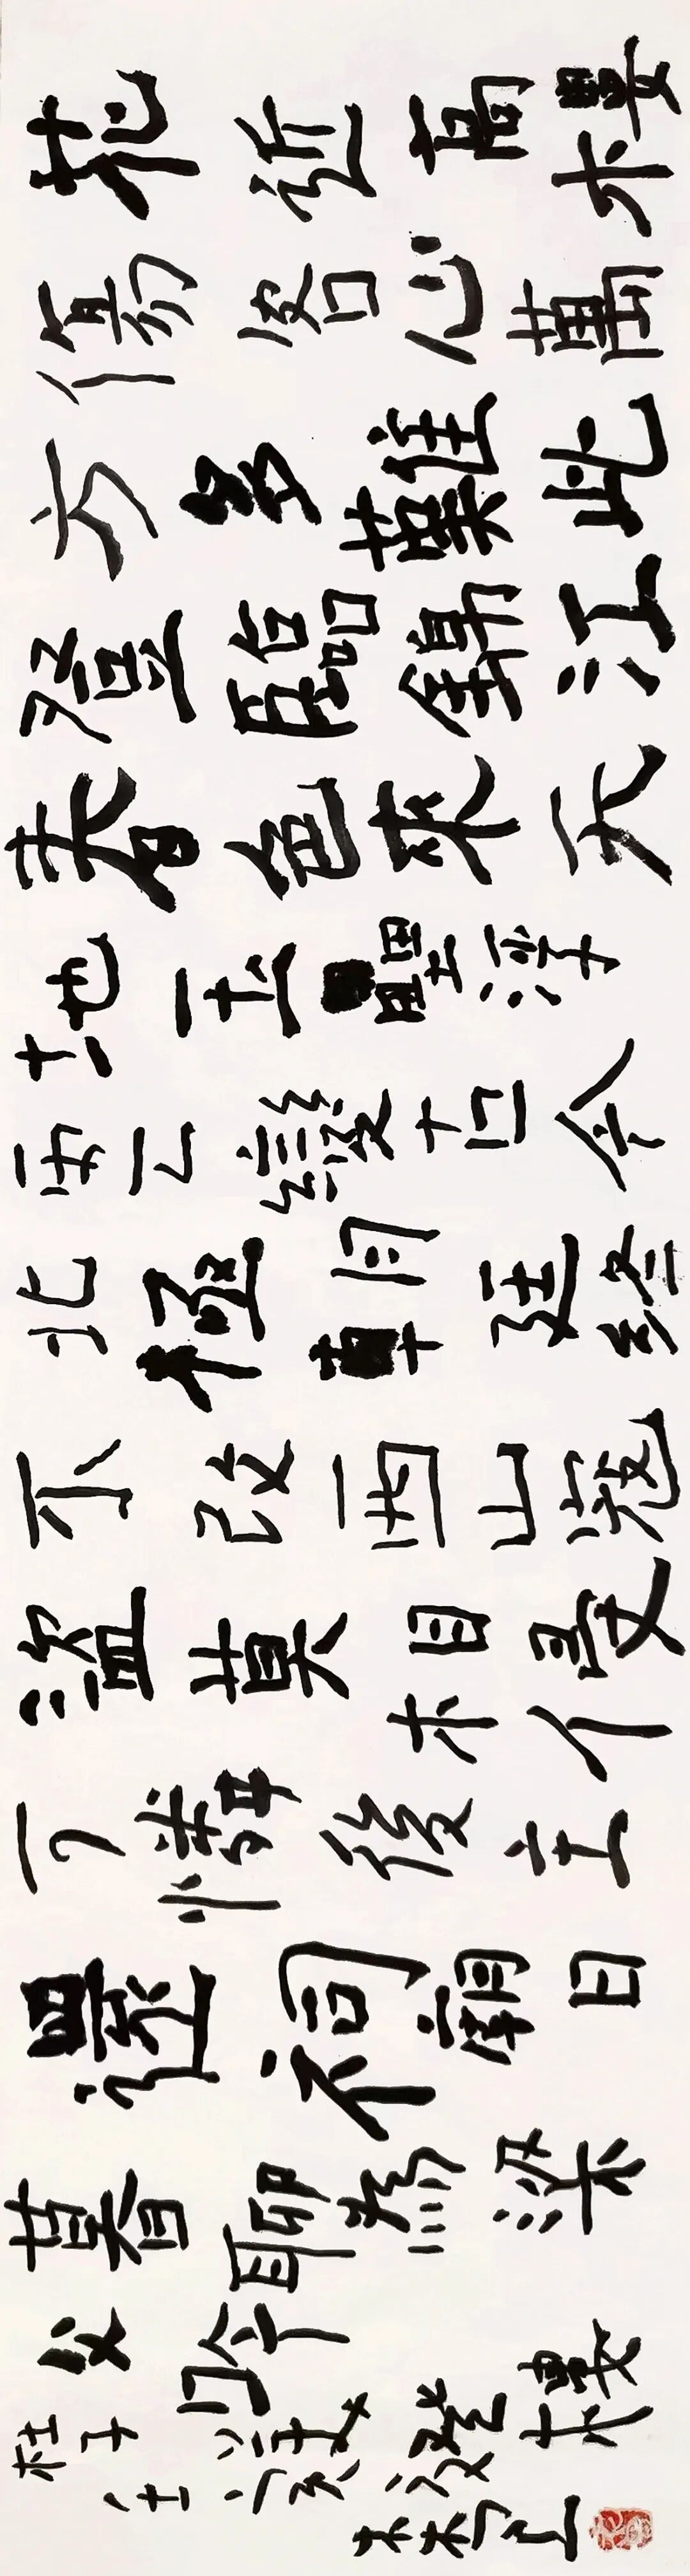 花近高樓
傷客心萬
方多難此
登臨錦江
春色來天
地玉壘浮
雲變古今
北極朝廷終
不改西山寇
盜莫相侵
可憐後主
還祠廟日
暮聊為梁
父吟登樓
杜子